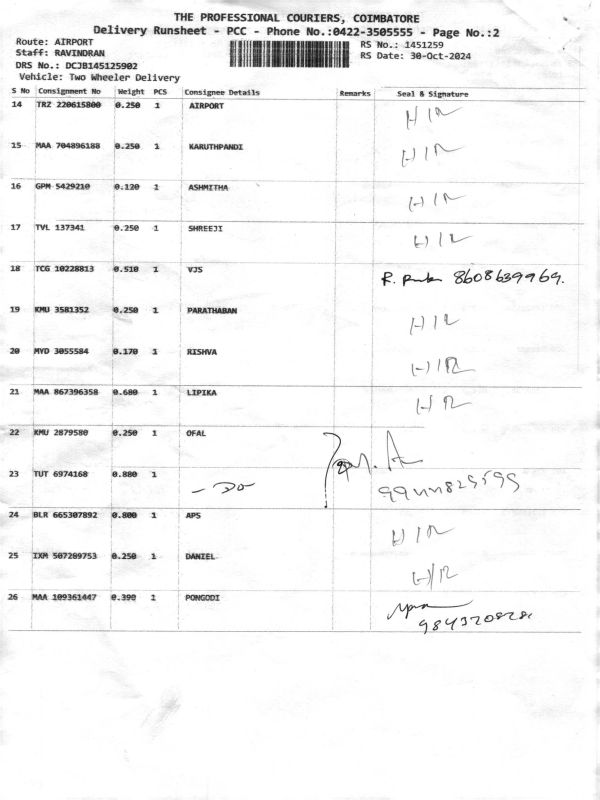 THE PROFESSIONAL COURIERS, COIMBATORE
Delivery Runsheet - PCC - Phone No.:0422-3505555 - Page No.:2
Route: AIRPORT RS No.: 1451259
Staff: RAVINDRAN RS Date: 30-Oct-2024
DRS No.: DCJB145125902
Vehicle: Two Wheeler Delivery
S No Consignment No Weight PCS Consignee Details Remarks Seal & Signature
14 TRZ 220615800 0.250 1 AIRPORT H/R
15 MAA 704896188 0.250 1 KARUTHPANDI H/R
16 GPM 5429210 0.120 1 ASHMITHA H/R
17 TVL 137341 0.250 1 SHREEJI H/R
18 TCG 10228813 0.510 1 VJS R. 8608639969.
19 KMU 3581352 0.250 1 PARATHABAN H/R
20 MYD 3055584 0.170 1 RISHVA H/R
21 MAA 867396358 0.680 1 LIPIKA H/R
22 KMU 2879580 0.250 1 OFAL
23 TUT 6974168 0.880 1 - Do -
24 BLR 665307892 0.800 1 APS H/R
25 IXM 507209753 0.250 1 DANIEL H/R
26 MAA 109361447 0.390 1 PONGODI